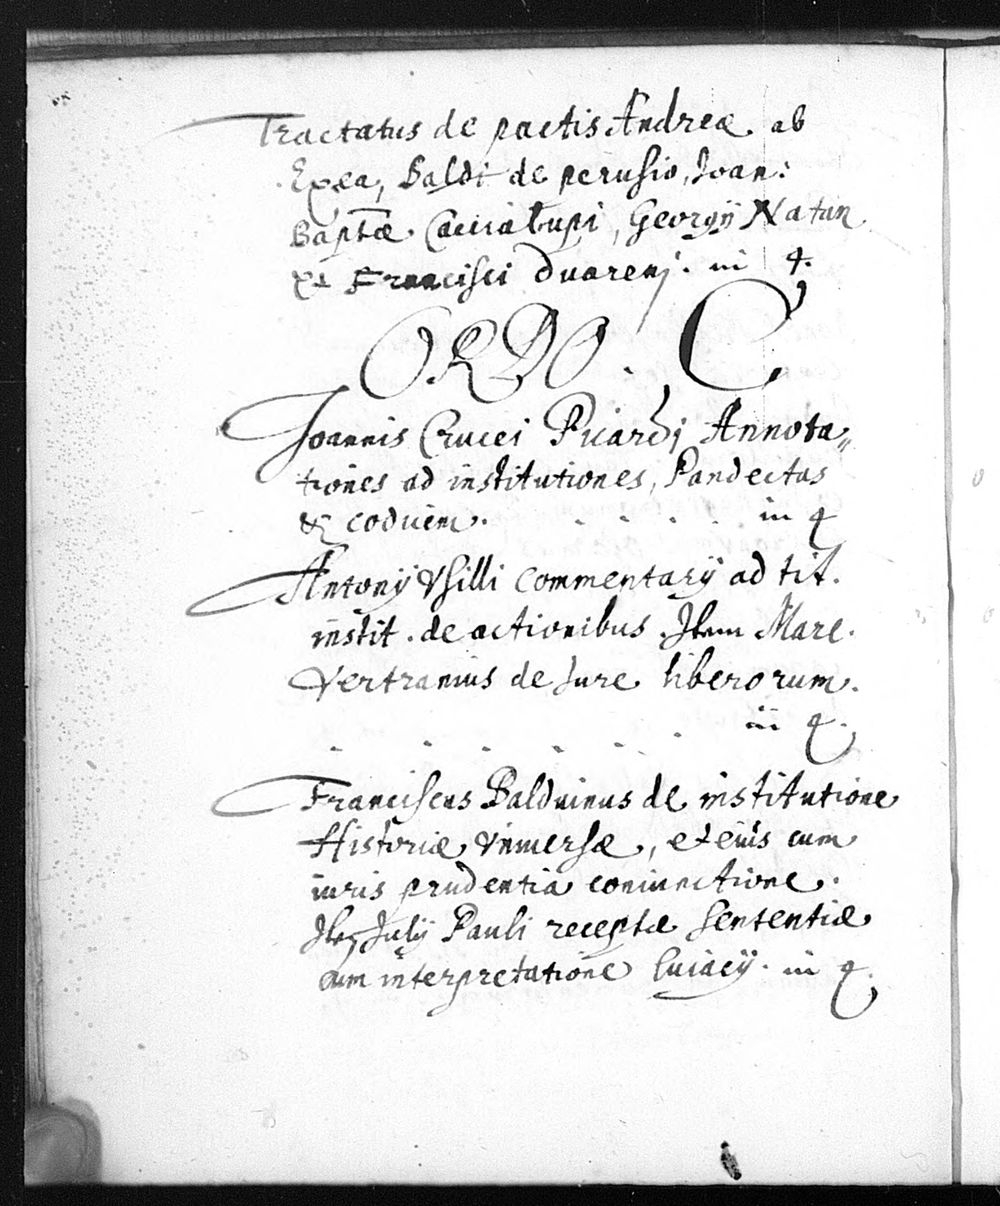 Tractatus de pactis Andreæ ab
Exea, Baldi de perusio, Joan:
Baptæ Caccialupi, Georgij Natan
et Francisci Duareni. in 4.
ORDO. C
Joannis Crucei Picardi Annota〃
tiones ad institutiones, Pandectas
& codicem. . . . . . in 4
Antonij Vsilli Commentarij ad tit.
instit. de actionibus. Item Marc.
Vertranius de Jure liberorum.
. . . . . . . in 4.
Franciscus Balduinus de institutione
Historiæ vniuersæ, et eius cum
iuris prudentia coniunctione.
Itẽ Julij Pauli receptæ sententiæ
cum interpretatione Cuiacij. in 4.